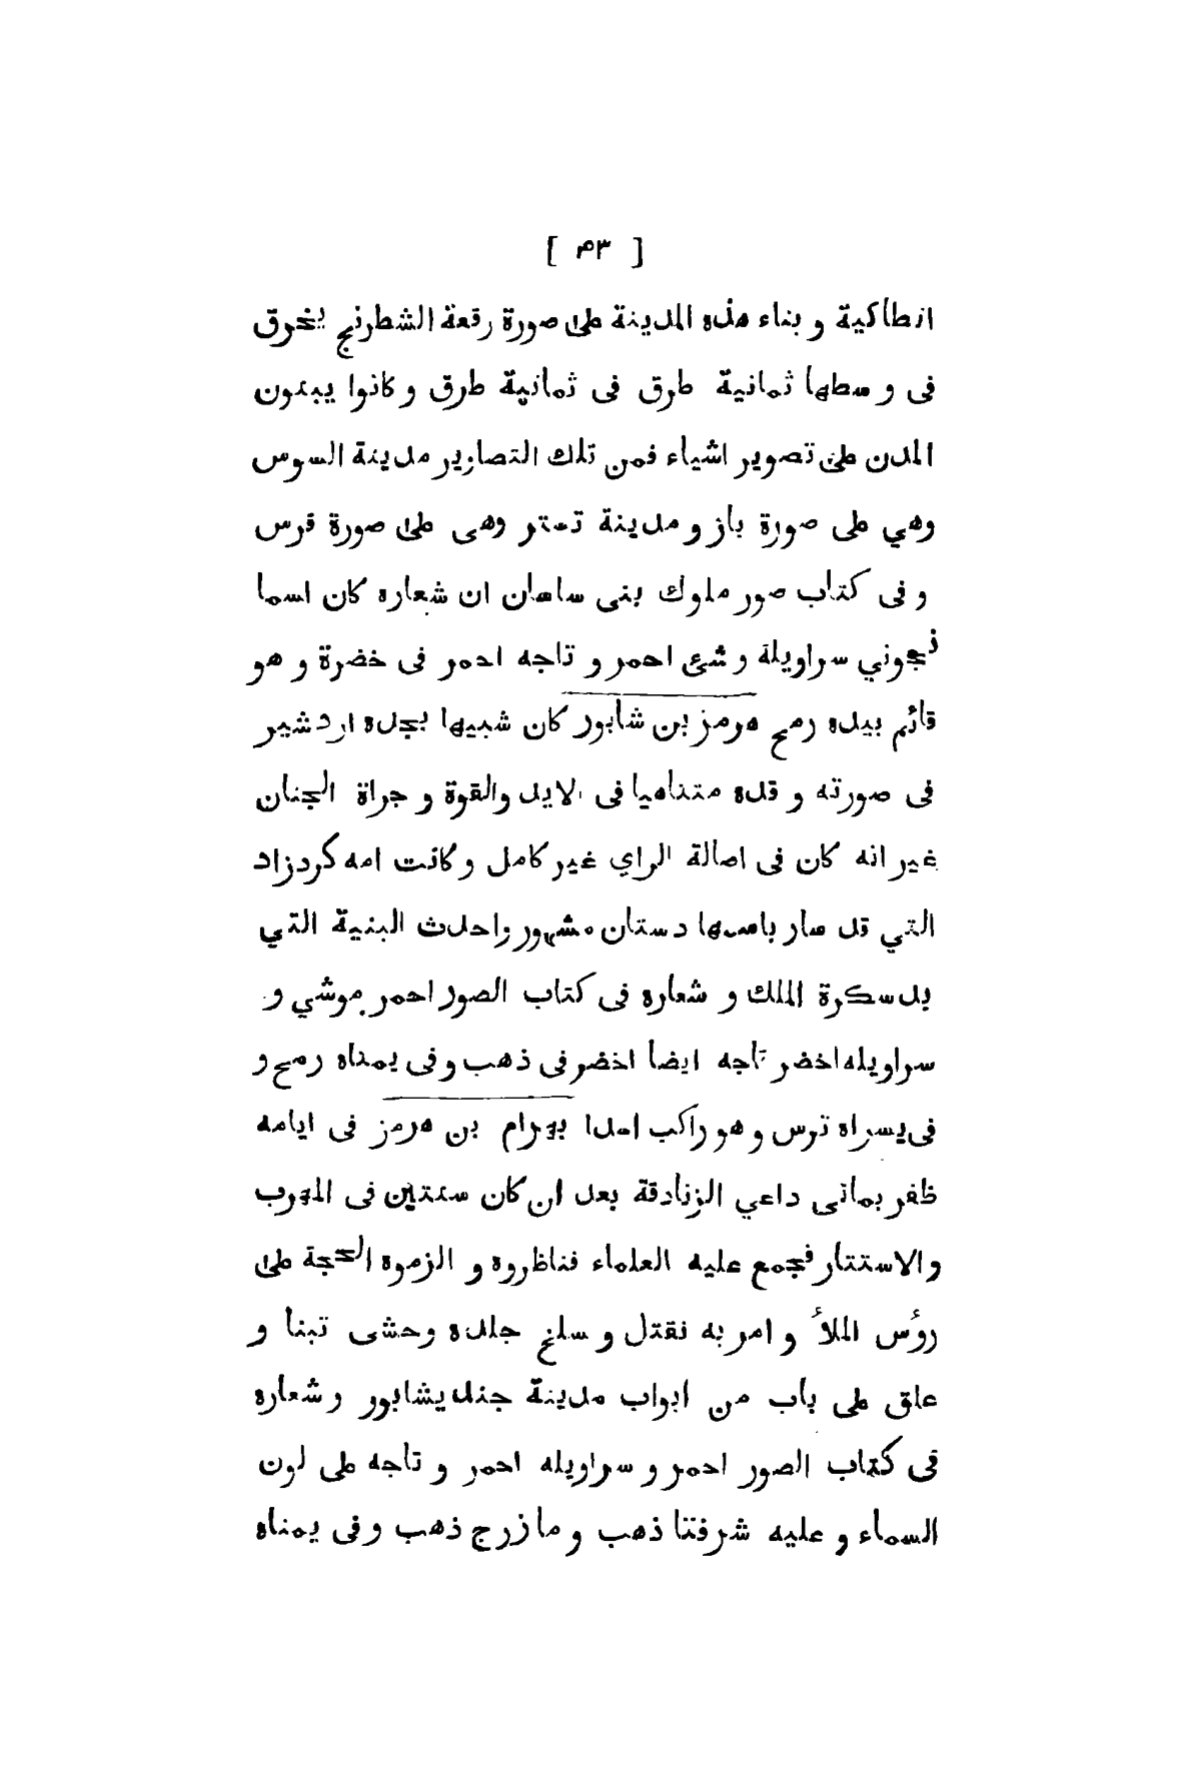 [ ۴۳ ]
انطاكية و بناء هذه المدينة على صورة رقعة الشطرنج يخرق
فى و سطها ثمانية طرق فى ثمانية طرق و كانوا يبنون
المدن على تصوير اشياء فمن تلك التصاوير مدينة السوس
وهي على صورة باز و مدينة تستر وهى على صورة فرس
و فى كتاب صور ملوك بنى ساسان ان شعاره كان اسما
نجوني سراويلة و شئ احمر و تاجه احمر فى خضرة و هو
قائم بيده رمح هرمز بن شابور كان شبيها بجده اردشير
فى صورته و قده متناهيا فى الايد والقوة و جراة الجنان
غير انه كان فى اصالة الراي غير كامل و كانت امه كردزاد
التي قد سار باسمها دستان مشهور واحدث البنية التي
بدسكرة الملك و شعاره فى كتاب الصور احمر موشي و
سراويله اخضر تاجه ايضا اخضر فى ذهب و فى يمناه رمح و
فى يسراه ترس و هو راكب اسدا بهرام بن هرمز فى ايامه
ظفر بمانى داعي الزنادقة بعد ان كان سنتين فى المهرب
والاستتار فجمع عليه العلماء فناظروه و الزموه الحجة على
روٴس الملأ و امر به نقتل و سلخ جلده وحشى تبنا و
علق على باب من ابواب مدينة جنديشابور و شعاره
فى كتاب الصور احمر و سراويله احمر و تاجه على لون
السماء و عليه شرفتا ذهب و مازرج ذهب و فى يمناه